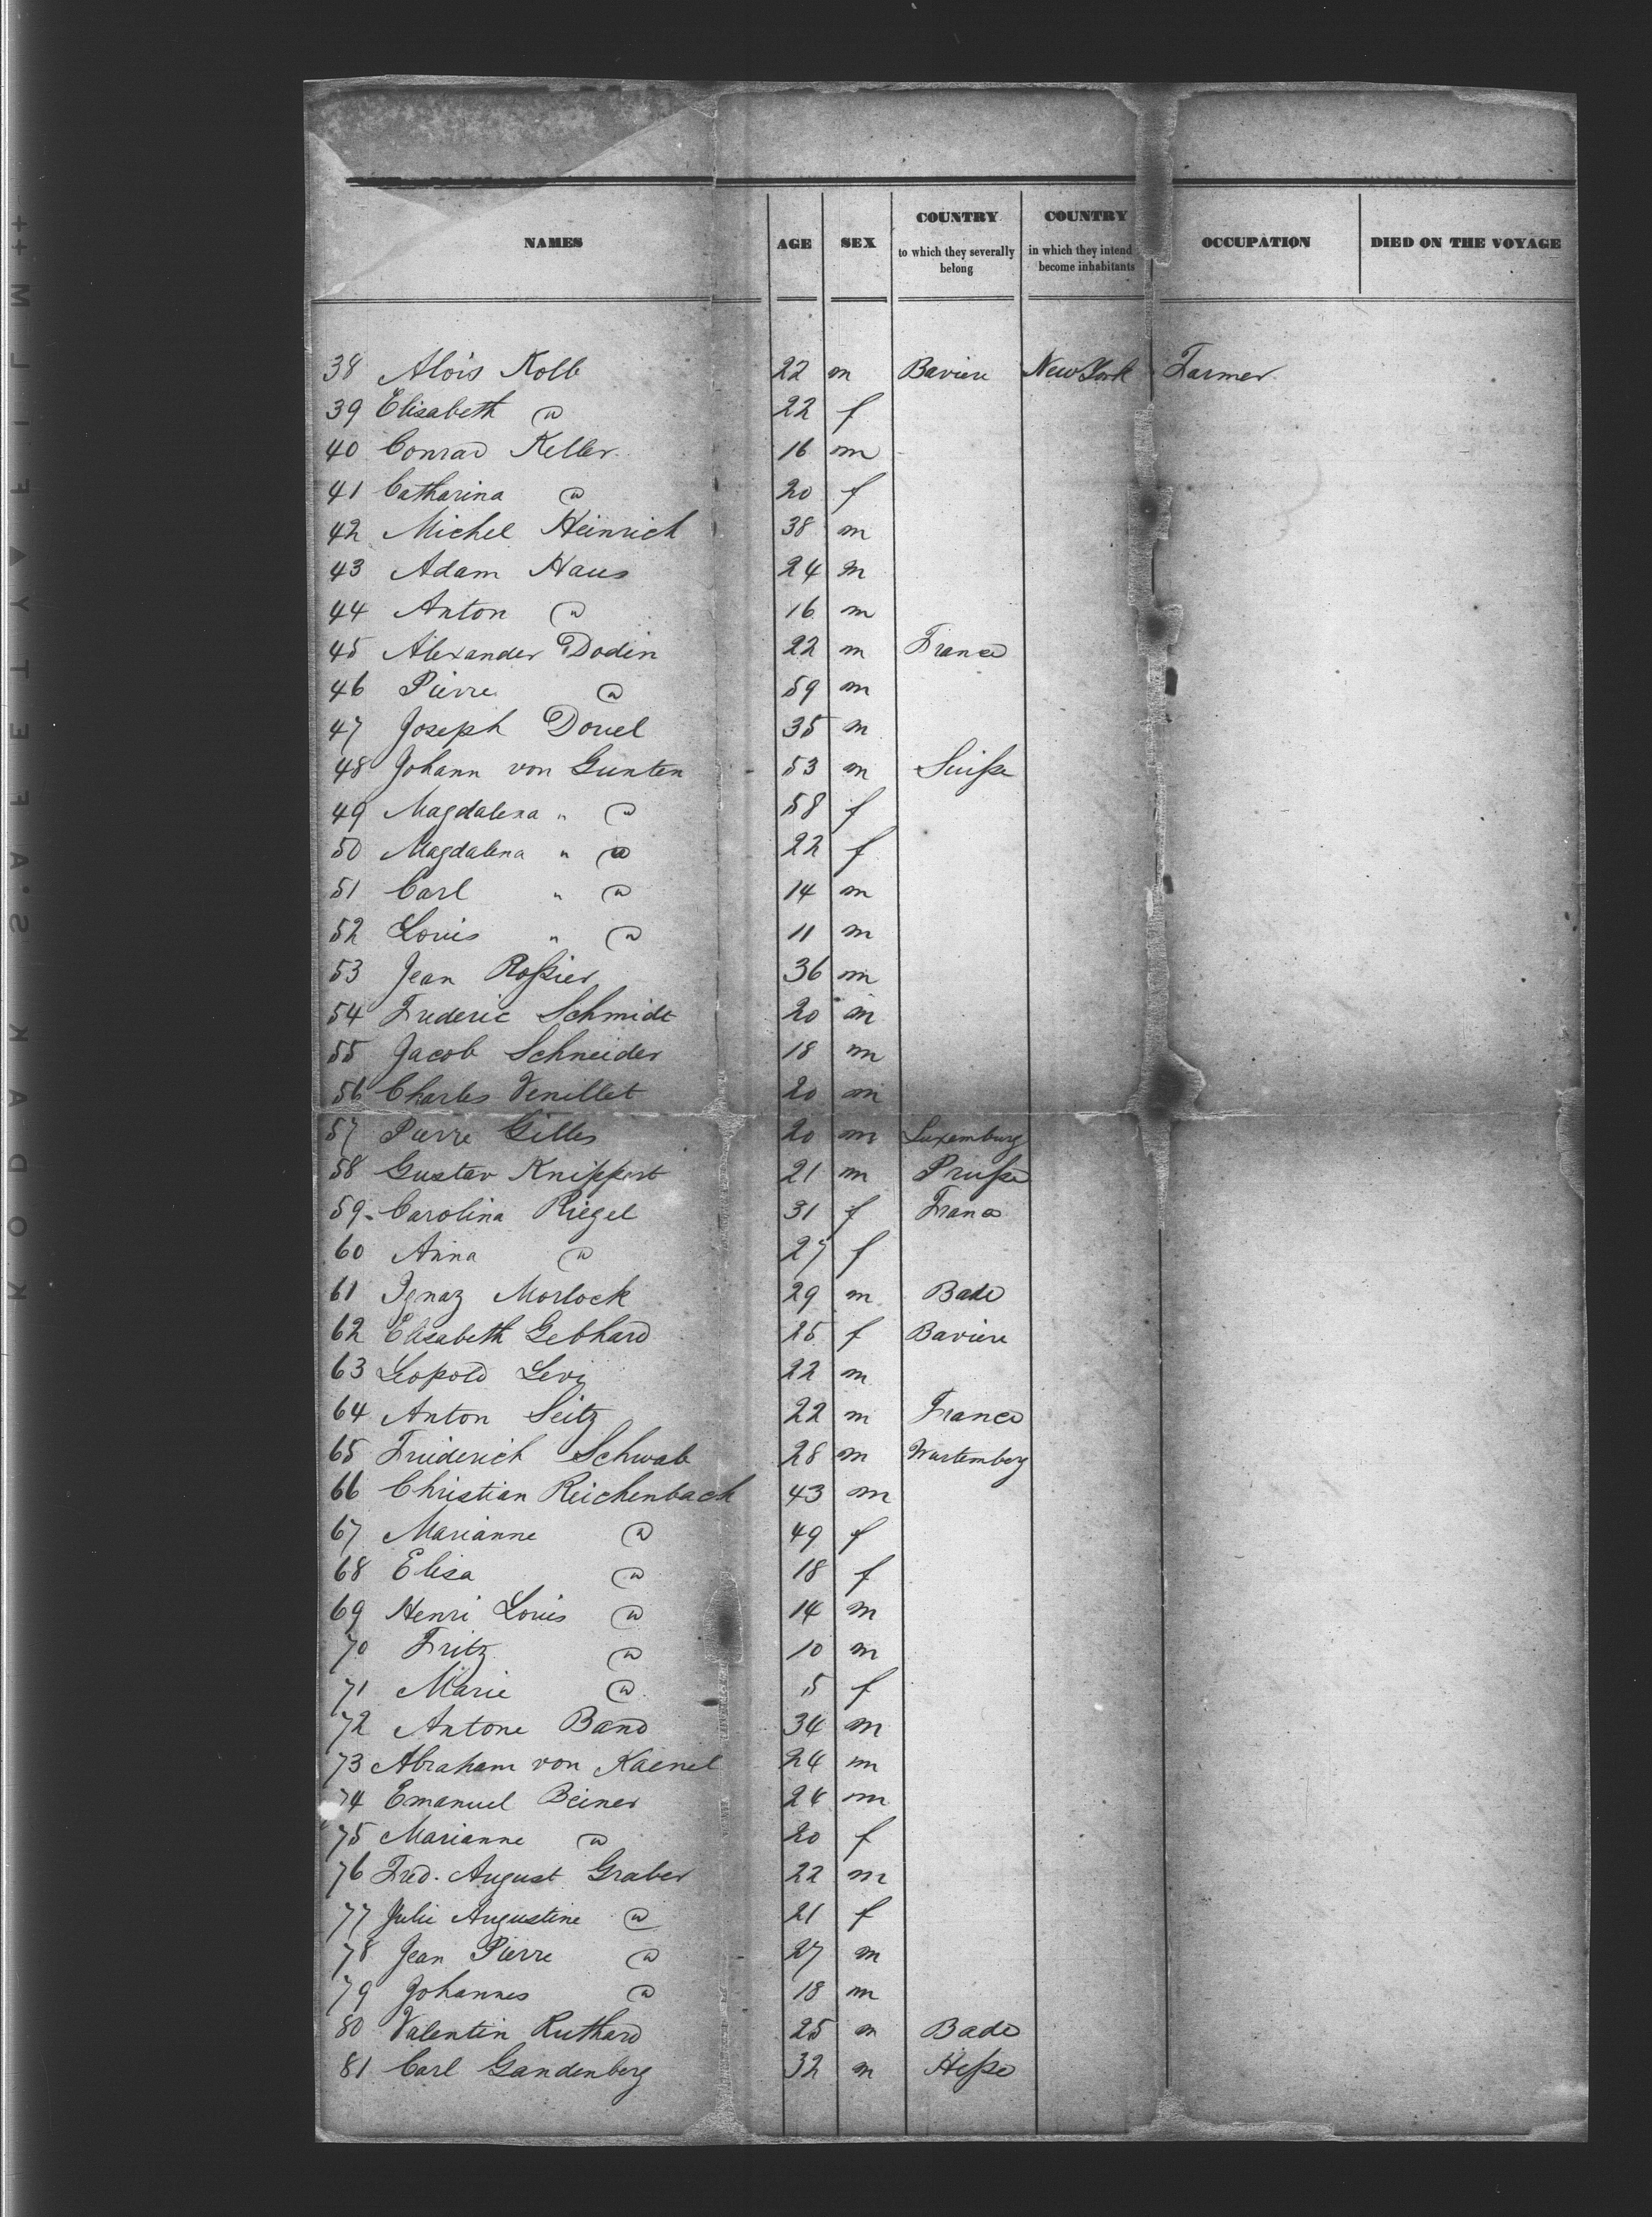 NAMES AGE SEX COUNTRY to which they severally belong COUNTRY in which they intend become inhabitants OCCUPATION DIED ON THE VOYAGE
38 Alois Kolb 22 m Baviere New York Farmer
39 Elisabeth @ 22 f
40 Conrad Keller 16 m
41 Catharina @ 20 f
42 Michel Heinrich 38 m
43 Adam Haus 24 m
44 Anton @ 16 m
45 Alexander Dodin 22 m France
46 Pierre @ 59 m
47 Joseph Douel 35 m
48 Johann von Gunten 53 m Suiße
49 Magdalena " @ 58 f
50 Magdalena " @ 22 f
51 Carl " @ 14 m
52 Louis " @ 11 m
53 Jean Roßier 36 m
54 Frederic Schmidt 20 m
55 Jacob Schneider 18 m
56 Charles Venillet 20 m
57 Pierre Gilles 20 m Luxemburg
58 Gustav Knippert 21 m Pruße
59 Carolina Riegel 31 f France
60 Anna @ 27 f
61 Ignaz Morlock 29 m Bade
62 Elisabeth Gebhard 25 f Baviere
63 Leopold Levi 22 m
64 Anton Seitz 22 m France
65 Friederich Schwab 28 m Wurtemberg
66 Christian Reichenbach 43 m
67 Marianne @ 49 f
68 Elisa @ 18 f
69 Henri Louis @ 14 m
70 Fritz @ 10 m
71 Marie @ 5 f
72 Antone Band 34 m
73 Abraham von Kaenel 24 m
74 Emanuel Beiner 24 m
75 Marianne @ 20 f
76 Fred. August Graber 22 m
77 Julie Augustine @ 21 f
78 Jean Pierre @ 27 m
79 Johannes @ 18 m
80 Valentin Ruthard 25 m Bade
81 Carl Gandenberg 32 m Heße
KODAK·S'AFETY FILM